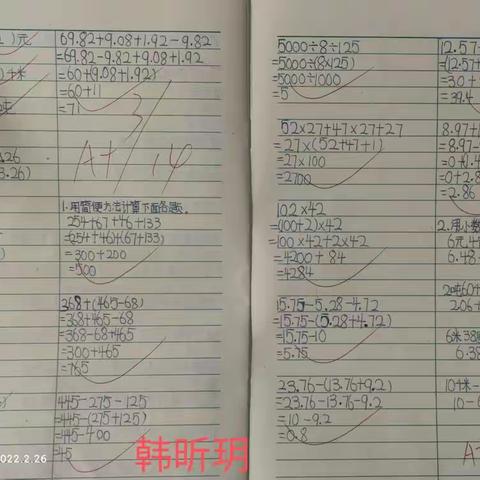 )元
69.82+9.08+1.92-9.82
=69.82-9.82+9.08+1.92
=60+(9.08+1.92)
=60+11
=71
A+
14
1.用简便方法计算下面各题。
254+67+46+133
=(254+46)+(67+133)
=300+200
=500
368+(465-68)
=368+465-68
=368-68+465
=300+465
=765
445-275-125
=445-(275+125)
=445-400
=45
5000÷8÷125
=5000÷(8×125)
=5000÷1000
=5
52×27+47×27+27
=27×(52+47+1)
=27×100
=2700
102×42
=(100+2)×42
=100×42+2×42
=4200+84
=4284
15.75-5.28-4.72
=15.75-(5.28+4.72)
=15.75-10
=5.75
23.76-(13.76+9.2)
=23.76-13.76-9.2
=10-9.2
=0.8
12.57+
=(12.57+
=30+
=39.4
8.97+1
=8.97-
=0+2.8
=2.86
2.用小数
6元4
6.48
2吨60
2.06+
6米38
6.38
10千米-
10-6
2022.2.26
韩昕玥